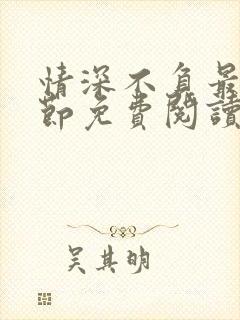 情深不負最
節免費閱讀
吴其明